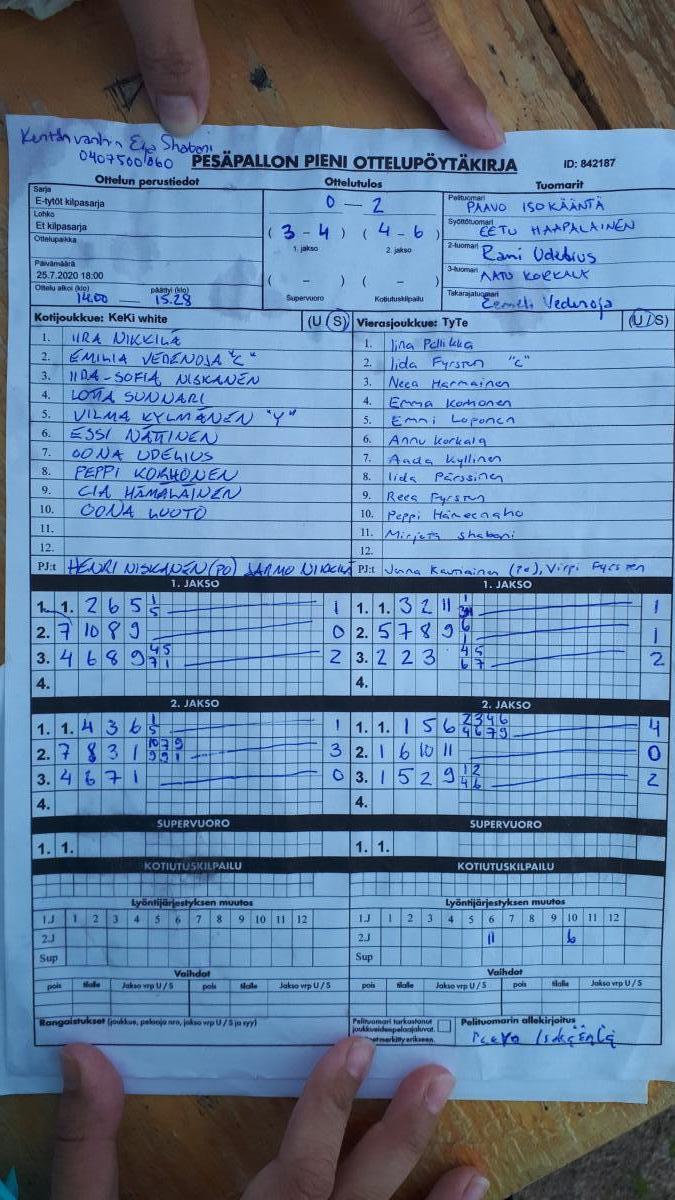 Kentän vanhin Eija Shabani
0407500860
PESÄPALLON PIENI OTTELUPÖYTÄKIRJA
ID: 842187
Ottelun perustiedot
Ottelutulos
Tuomarit
Sarja
E-tytöt kilpasarja
Lohko
Et kilpasarja
Ottelupaikka
Päivämäärä
25.7.2020 18:00
Ottelu alkoi (klo)
päättyi (klo)
14.00 — 15.28
0 — 2
( 3 - 4 ) ( 4 - 6 )
1. jakso 2. jakso
( – ) ( – )
Supervuoro Kotiutuskilpailu
Pelituomari PAAVO ISOKÄÄNTÄ
Syöttötuomari EETU HAAPALAINEN
2-tuomari Rami Udelius
3-tuomari AATU KORKALA
Takarajatuomari Eemeli Vedenoja
Kotijoukkue: KeKi white (U / S)
1. IIRA NIKKILÄ
2. EMILIA VEDENOJA "C"
3. IIDA-SOFIA NISKANEN
4. LOTTA SUNNARI
5. VILMA KYLMÄNEN "Y"
6. ESSI NÄTTINEN
7. OONA UDELIUS
8. PEPPI KORHONEN
9. CIA HÄMÄLÄINEN
10. OONA LUOTO
11.
12.
PJ:t HENRI NISKANEN (PO) JARMO NIKKILÄ
Vierasjoukkue: TyTe (U / S)
1. Iina Pellikka
2. Iida Fyrsten "C"
3. Neea Harmainen
4. Emma Korhonen
5. Emmi Loponen
6. Annu Korkala
7. Aada Kyllinen
8. Iida Pärssinen
9. Reea Fyrsten
10. Peppi Hämeenaho
11. Mirjeta Shabani
12.
PJ:t Jonna Kauniainen (Po), Virpi Fyrsten
1. JAKSO
1. 1. 2 6 5 1 5 1
2. 7 10 8 9 0
3. 4 6 8 9 45 71 2
4.
1. JAKSO
1. 1. 3 2 11 1
2. 5 7 8 9 6 1 1
3. 2 2 3 45 67 2
4.
2. JAKSO
1. 1. 4 3 6 1 5 1
2. 7 8 3 1 10 7 9 9 9 1 3
3. 4 6 7 1 0
4.
2. JAKSO
1. 1. 1 5 6 2346 4679 4
2. 1 6 10 11 0
3. 1 5 2 9 12 46 2
4.
SUPERVUORO
1. 1.
SUPERVUORO
1. 1.
KOTIUTUSKILPAILU
KOTIUTUSKILPAILU
Lyöntijärjestyksen muutos
1.J 1 2 3 4 5 6 7 8 9 10 11 12
2.J
Sup
Lyöntijärjestyksen muutos
1.J 1 2 3 4 5 6 7 8 9 10 11 12
2.J 11 6
Sup
Vaihdot
pois tilalle Jakso vrp U / S pois tilalle Jakso vrp U / S
Vaihdot
pois tilalle Jakso vrp U / S pois tilalle Jakso vrp U / S
Rangaistukset (joukkue, pelaaja nro, jakso vrp U / S ja syy)
Pelituomari tarkastanut
joukkueidenpelaajaluvat.
merkitty erikseen.
Pelituomarin allekirjoitus
Paavo Isokääntä